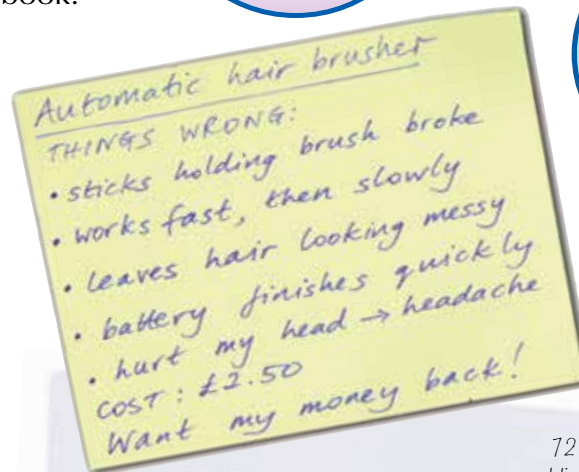 book.
Automatic hair brusher
THINGS WRONG:
• sticks holding brush broke
• works fast, then slowly
• leaves hair looking messy
• battery finishes quickly
• hurt my head → headache
COST: £2.50
Want my money back!
72